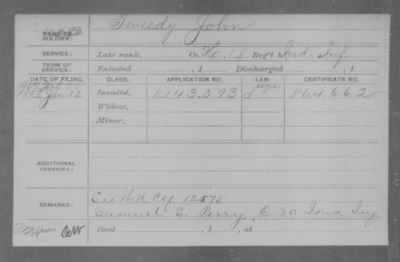 NAME OF SOLDIER: Tweedy John
SERVICE: Late rank, Co. H, 18 Reg't Ind. Inf
TERM OF SERVICE: Enlisted , 1 Discharged , 1
DATE OF FILING. CLASS. APPLICATION NO. LAW. CERTIFICATE NO.
Invalid, 1,143,593 864,662
Widow,
Minor,
ADDITIONAL SERVICES:
REMARKS: See Wid Ctf 12575
Samuel E. Perry, C. 30 Iowa Inf.
Died , 1 , at